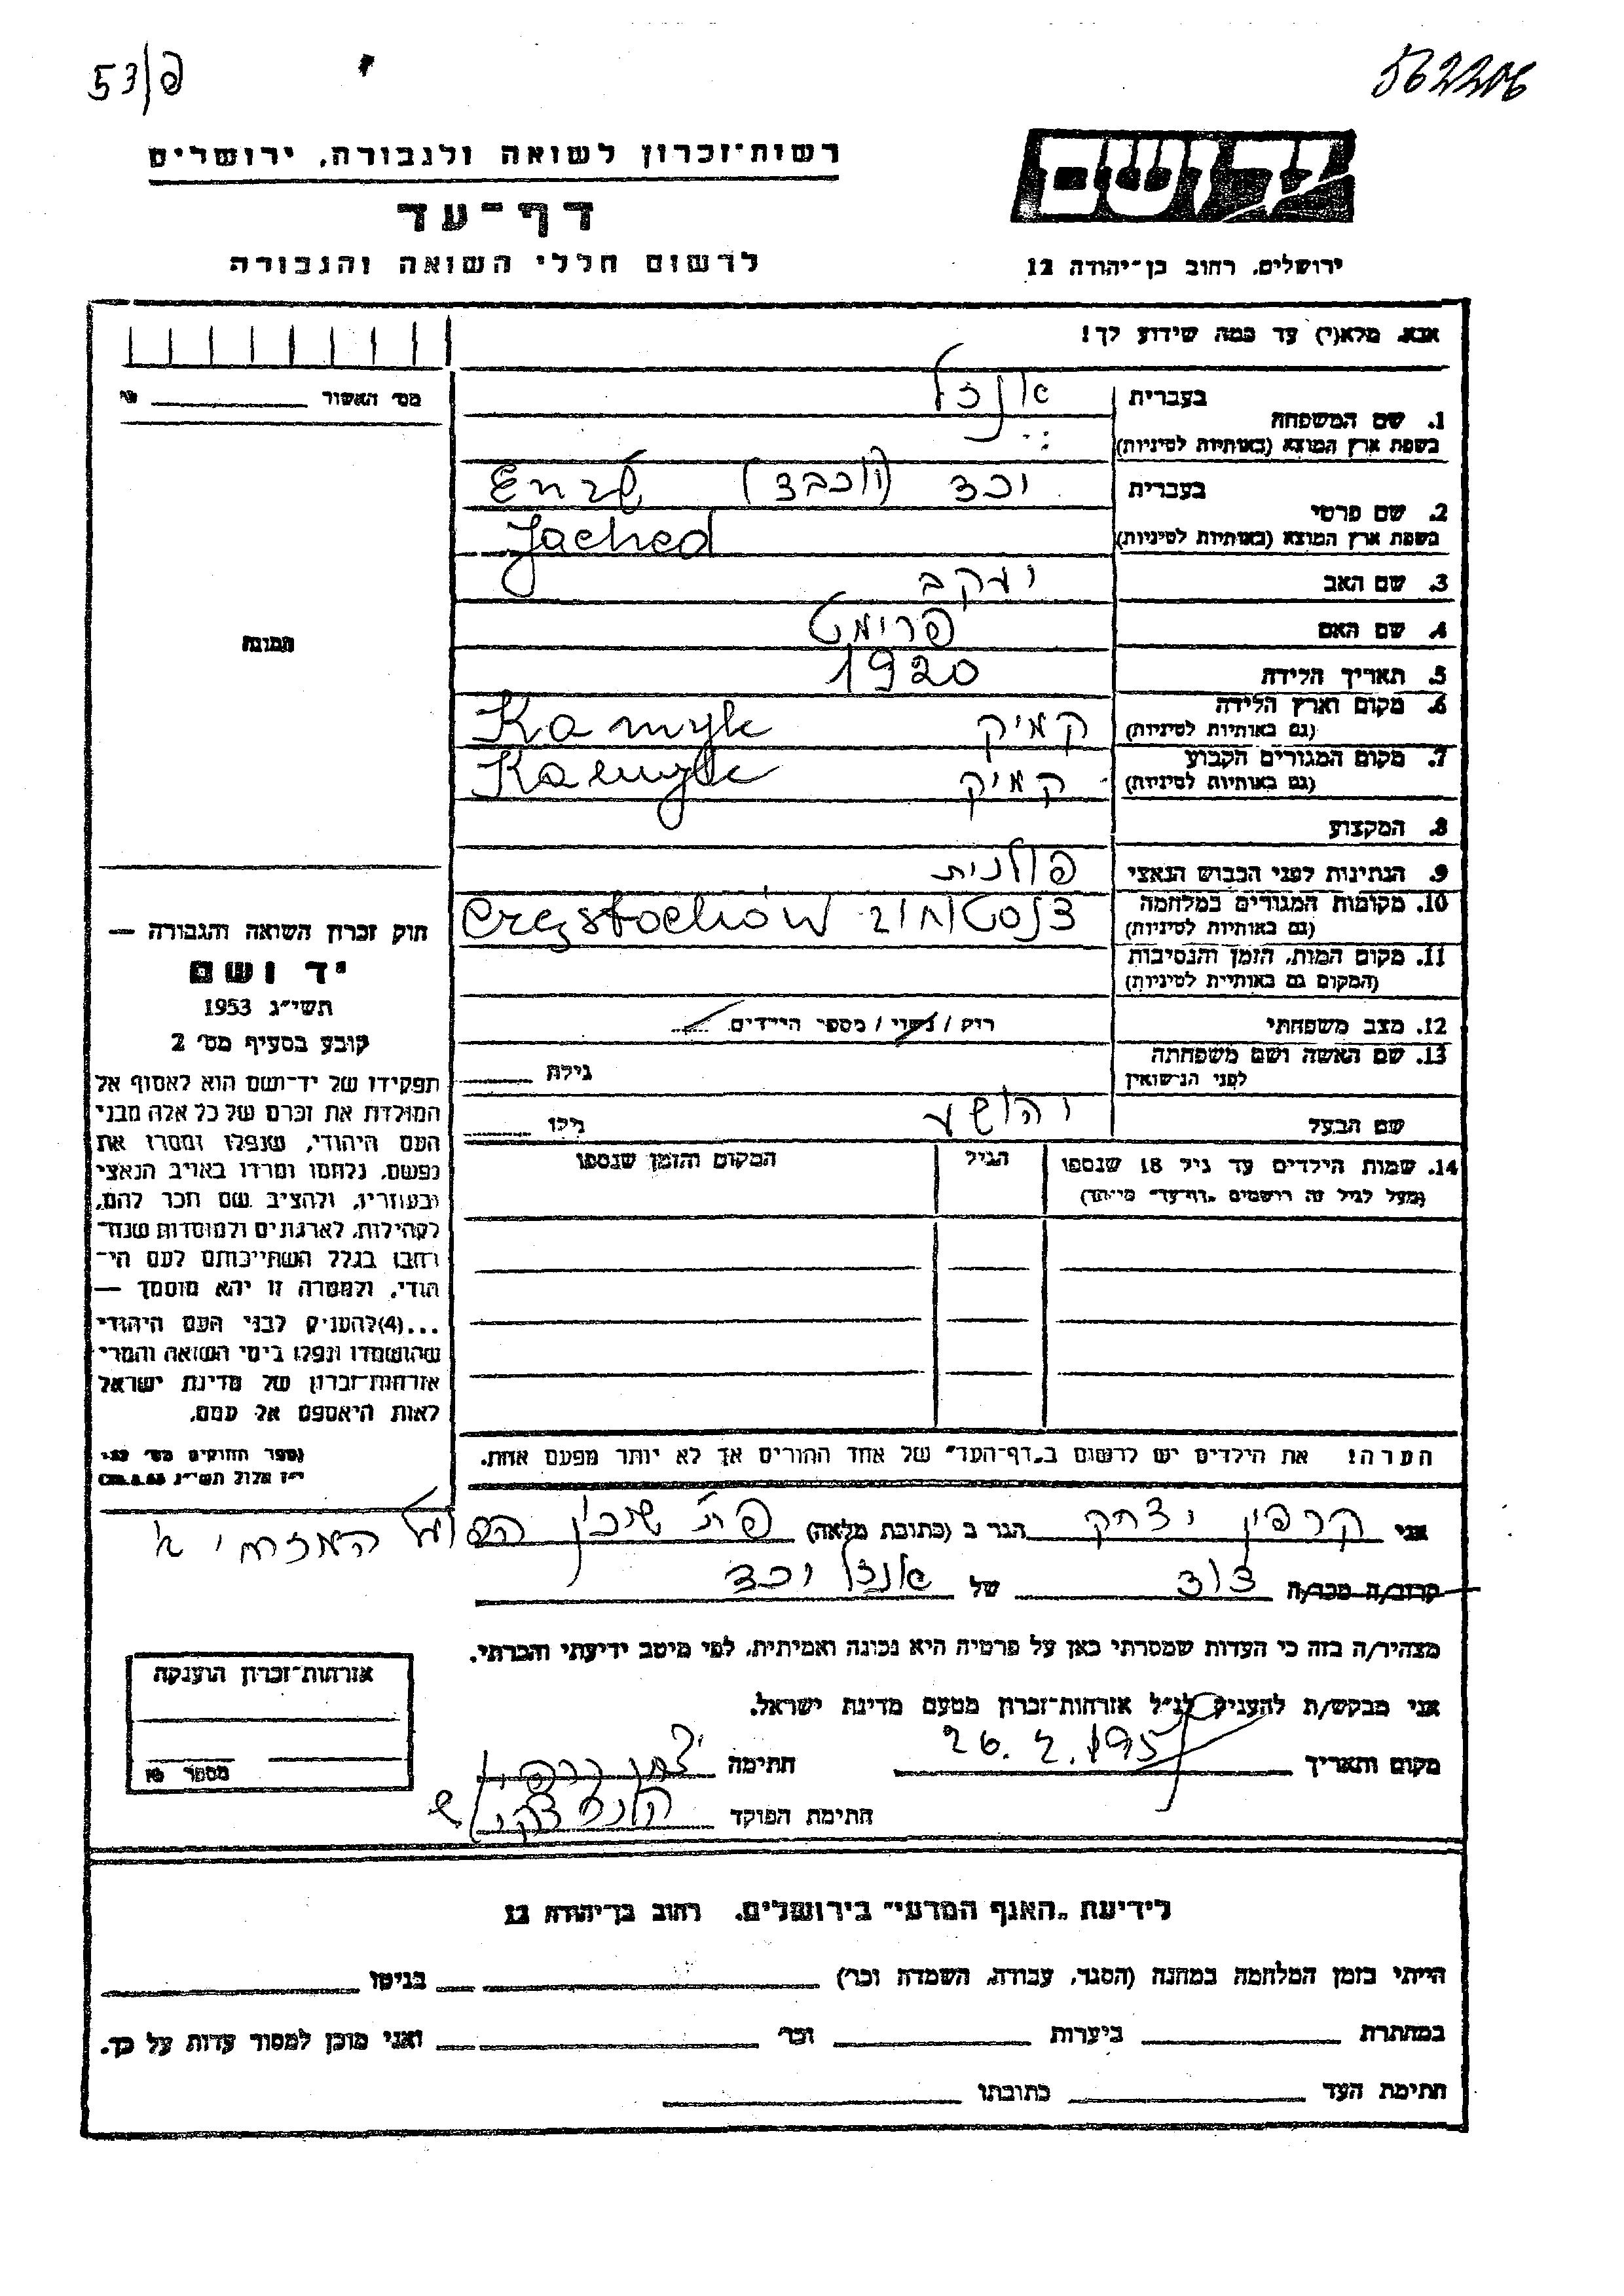 53/פ
562206
יד ושם
רשות־זכרון לשואה ולגבורה, ירושלים
דף־עד
לרשום חללי השואה והגבורה
ירושלים, רחוב בן־יהודה 12
אנא, מלא(י) עד כמה שידוע לך!
מס׳ האשור
1. שם המשפחה
בעברית
אנזל
בשפת ארץ המוצא (באותיות לטיניות)
Enzel
2. שם פרטי
בעברית
יכד (יוכבד)
בשפת ארץ המוצא (באותיות לטיניות)
Jached
3. שם האב
יעקב
4. שם האם
פרימט
5. תאריך הלידה
1920
6. מקום וארץ הלידה
(גם באותיות לטיניות)
קמיק Kamyk
7. מקום המגורים הקבוע
(גם באותיות לטיניות)
קמיק Kamyk
8. המקצוע
9. הנתינות לפני הכבוש הנאצי
פולנית
10. מקומות המגורים במלחמה
(גם באותיות לטיניות)
צנסטאחוב Częstochów
11. מקום המות, הזמן והנסיבות
(המקום גם באותיות לטיניות)
12. מצב משפחתי
רווק / נשוי / מספר הילדים
13. שם האשה ושם משפחתה
לפני הנישואין
גילה
שם הבעל
יהושע
גילו
14. שמות הילדים עד גיל 18 שנספו
(מעל לגיל זה רושמים „דף־עד״ מיוחד)
הגיל
המקום והזמן שנספו
הערה! את הילדים יש לרשום ב„דף־העד״ של אחד ההורים אך לא יותר מפעם אחת.
תמונה
חוק זכרון השואה והגבורה —
יד ושם
תשי״ג 1953
קובע בסעיף מס׳ 2
תפקידו של יד־ושם הוא לאסוף אל
המולדת את זכרם של כל אלה מבני
העם היהודי, שנפלו ומסרו את
נפשם, נלחמו ומרדו באויב הנאצי
ובעוזריו, ולהציב שם וזכר להם,
לקהילות, לארגונים ולמוסדות שנח־
רבו בגלל השתייכותם לעם הי־
הודי, ולמטרה זו יהא מוסמך —
...(4)להעניק לבני העם היהודי
שהושמדו ונפלו בימי השואה והמרי
אזרחות־זכרון של מדינת ישראל
לאות היאספם אל עמם.
(ספר החוקים מס׳ 132
י״ז אלול תשי״ג 28.8.53)
אני קרפין יצחק הגר ב (כתובת מלאה) פת שיכון הפועל המזרחי א
קרוב/ה מכר/ה דוד של אנזל יכד
מצהיר/ה בזה כי העדות שמסרתי כאן על פרטיה היא נכונה ואמיתית, לפי מיטב ידיעתי והכרתי.
אני מבקש/ת להעניק לנ״ל אזרחות־זכרון מטעם מדינת ישראל.
מקום ותאריך 26.2.195 חתימה
חתימת הפוקד
אזרחות־זכרון הוענקה
מספר
לידיעת „האגף המדעי״ בירושלים, רחוב בן־יהודה 12
הייתי בזמן המלחמה במחנה (הסגר, עבודה, השמדה וכו׳) בגיטו
במחתרת ביערות וכו׳ ואני מוכן למסור עדות על כך.
חתימת העד כתובתו